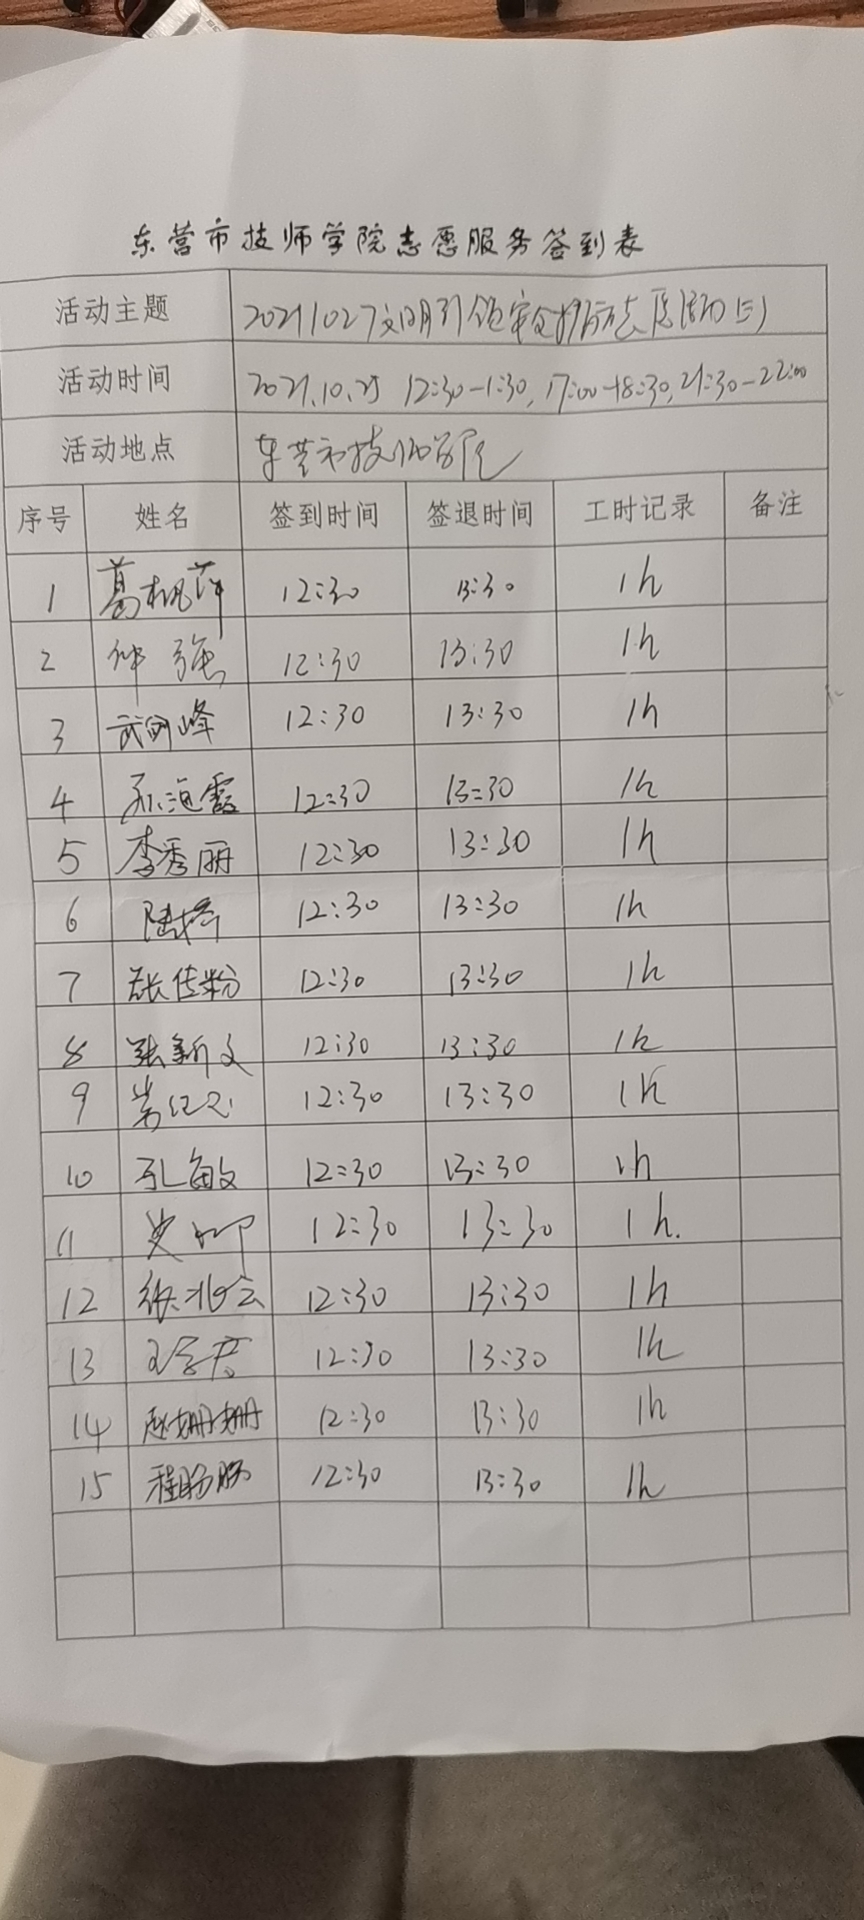 东营市技师学院志愿服务签到表
活动主题 20211027文明引领安全护航志愿活动(三)
活动时间 2021.10.27 12:30-1:30, 17:00-18:30, 21:30-22:00
活动地点 东营市技师学院
序号 姓名 签到时间 签退时间 工时记录 备注
1 葛枫萍 12:30 13:30 1h
2 仲强 12:30 13:30 1h
3 武 峰 12:30 13:30 1h
4 孙海霞 12:30 13:30 1h
5 李秀丽 12:30 13:30 1h
6 陆 12:30 13:30 1h
7 张佳粉 12:30 13:30 1h
8 张新文 12:30 13:30 1h
9 12:30 13:30 1h
10 孔敏 12:30 13:30 1h
11 12:30 13:30 1h.
12 张兆会 12:30 13:30 1h
13 12:30 13:30 1h
14 赵姗姗 12:30 13:30 1h
15 程 12:30 13:30 1h